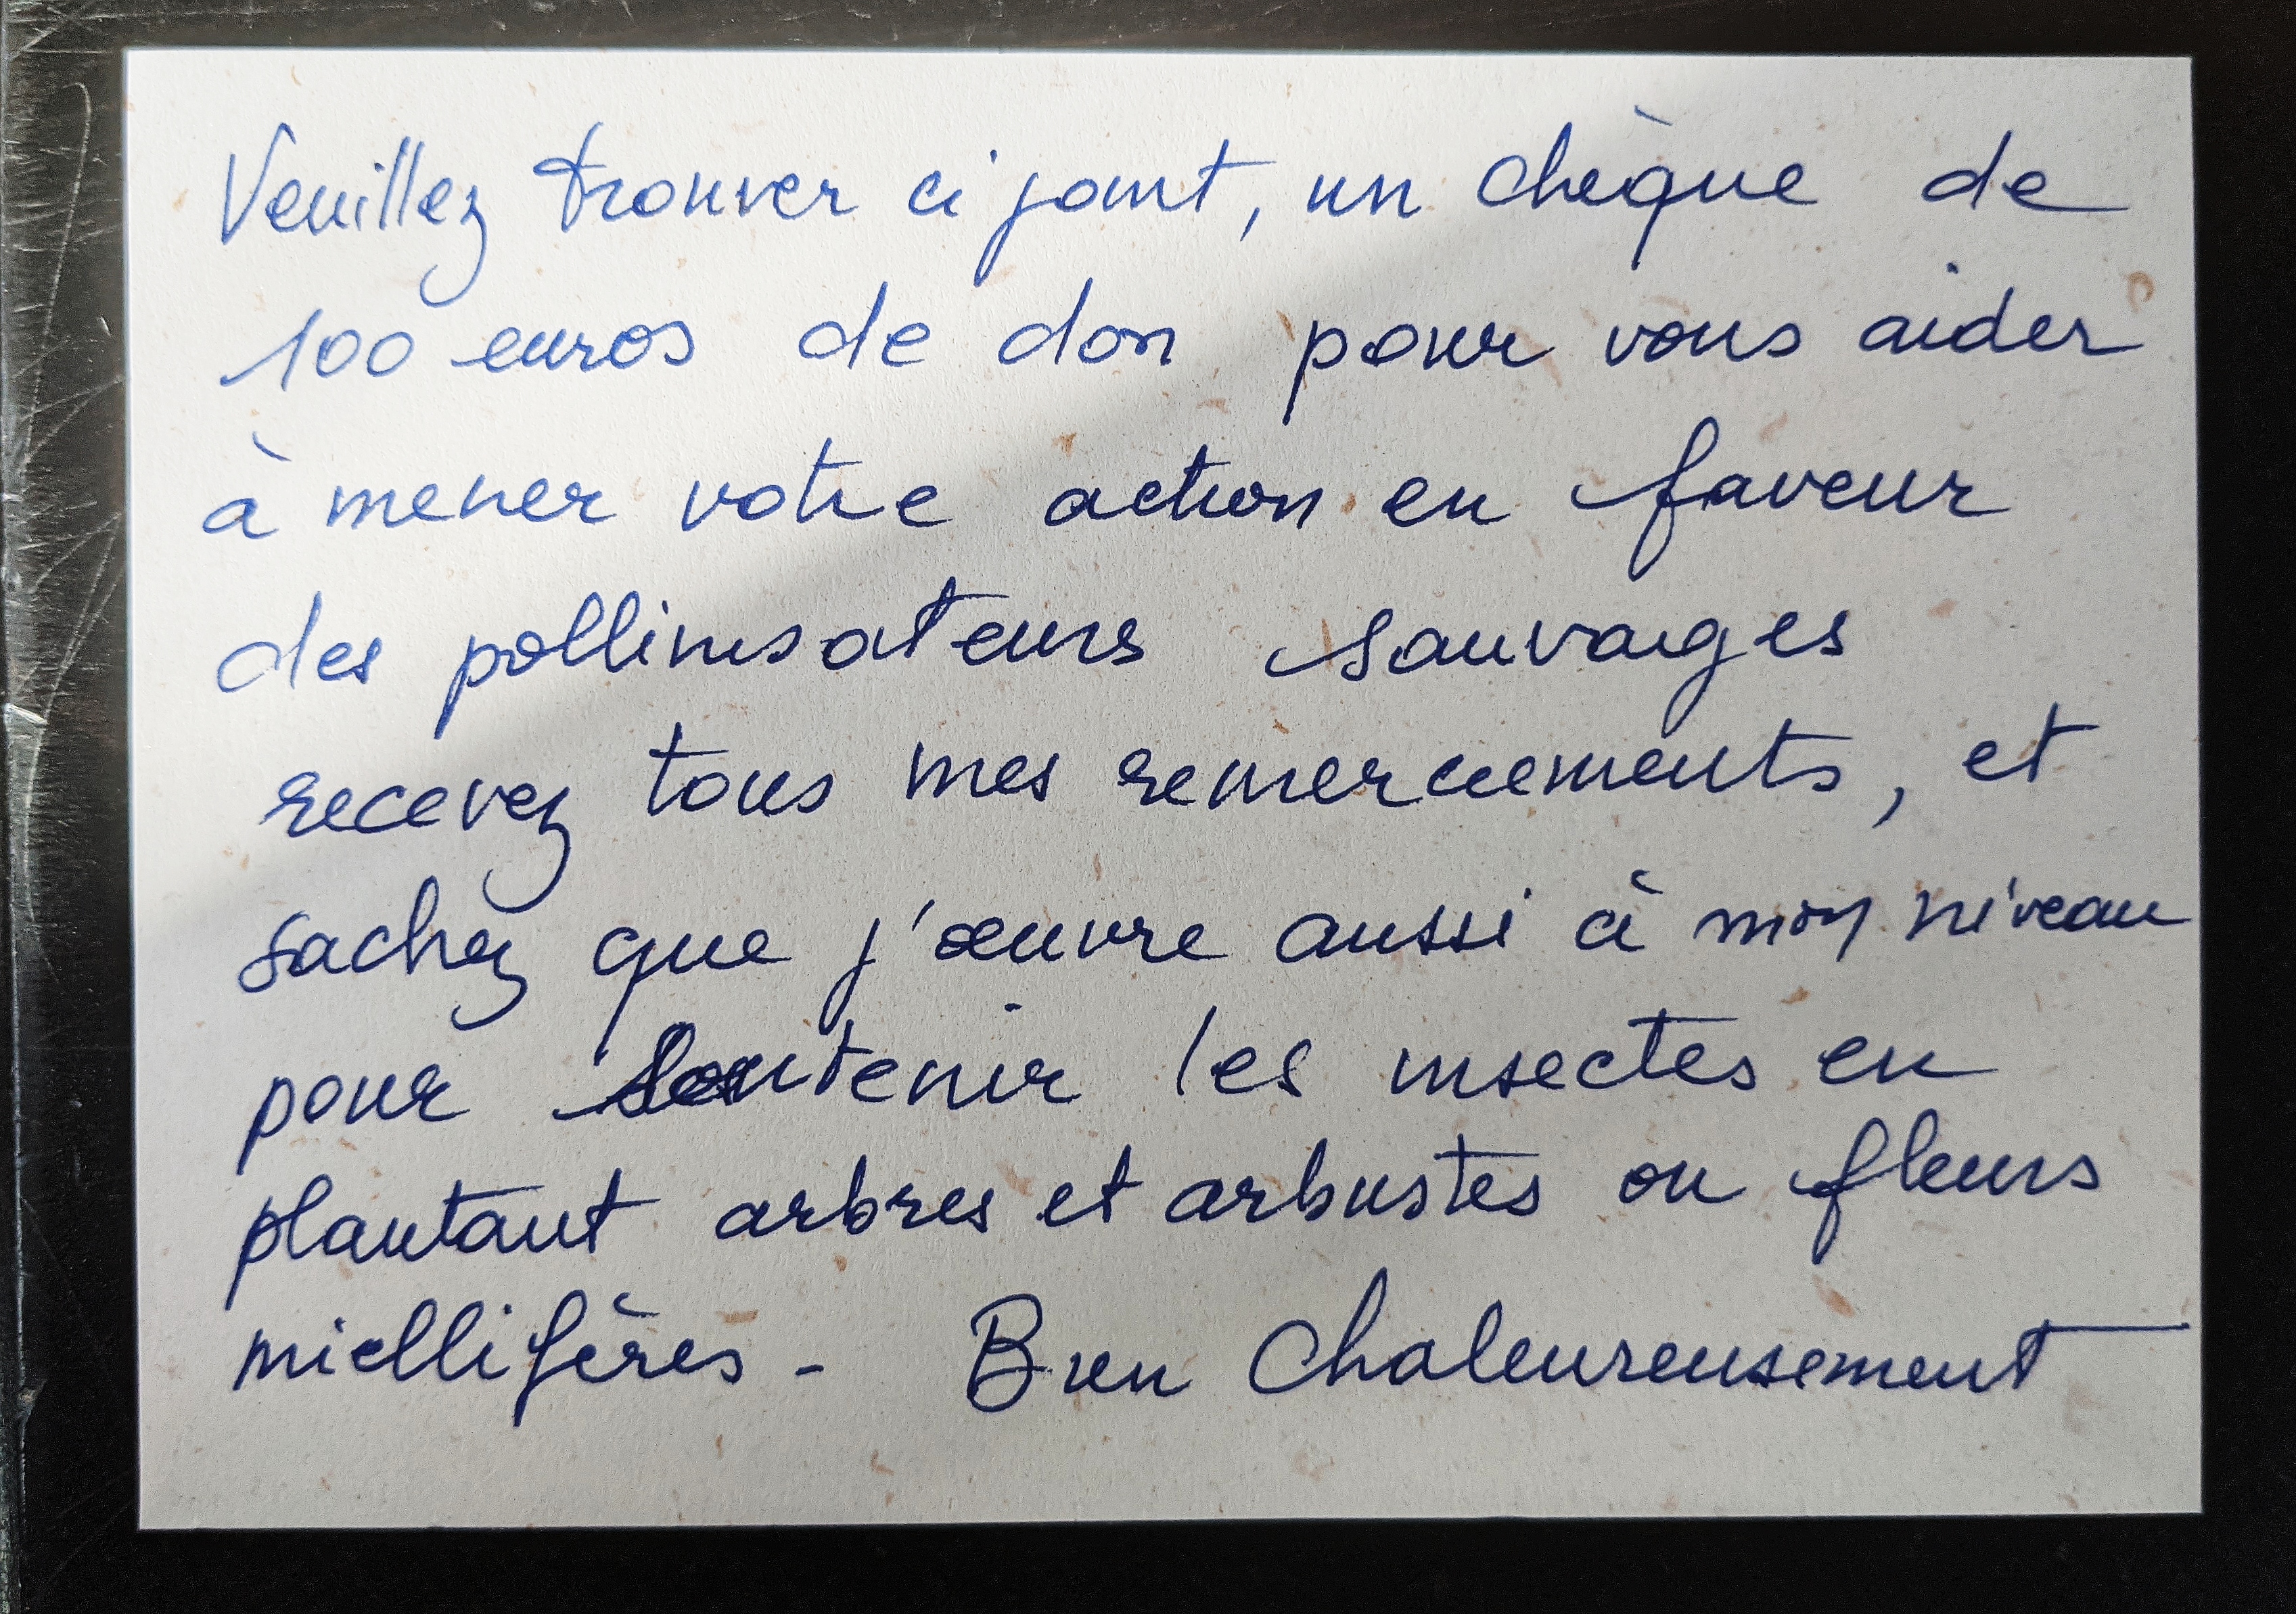 Veuillez trouver ci joint, un chèque de
100 euros de don pour vous aider
à mener votre action en faveur
des pollinisateurs sauvages
recevez tous mes remerciements, et
sachez que j'œuvre aussi à mon niveau
pour soutenir les insectes en
plantant arbres et arbustes ou fleurs
miellifères - Bien Chaleureusement